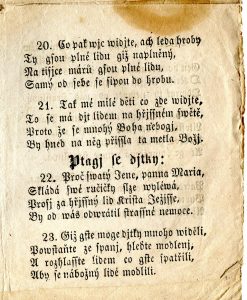 20. Co pak wjc widjte, ach leda hroby
Ty gsou plné lidu giž naplněný,
Na tisjce márů gsou plné lidu,
Samy od sebe se sypou do hrobu.
21. Tak mé milé děti co zde widjte,
To se má djt lidem na hřjssném swětě,
Proto že se mnohý Boha nebogj,
By hned na něg přissla ta metla Božj.
Ptagj se djtky:
22. Proč swatý Jene, panna Maria,
Skládá swé ručičky slze wylewá,
Prosj za hřjssný lid Krista Ježjsse,
By od wás odwrátil strassné nemoce.
23. Giž gste moge djtky mnoho widěli,
Powstaňte ze spanj, hleďte modlenj,
A rozhlasste lidem co gste spatřili,
Aby se nábožný lidé modlili.